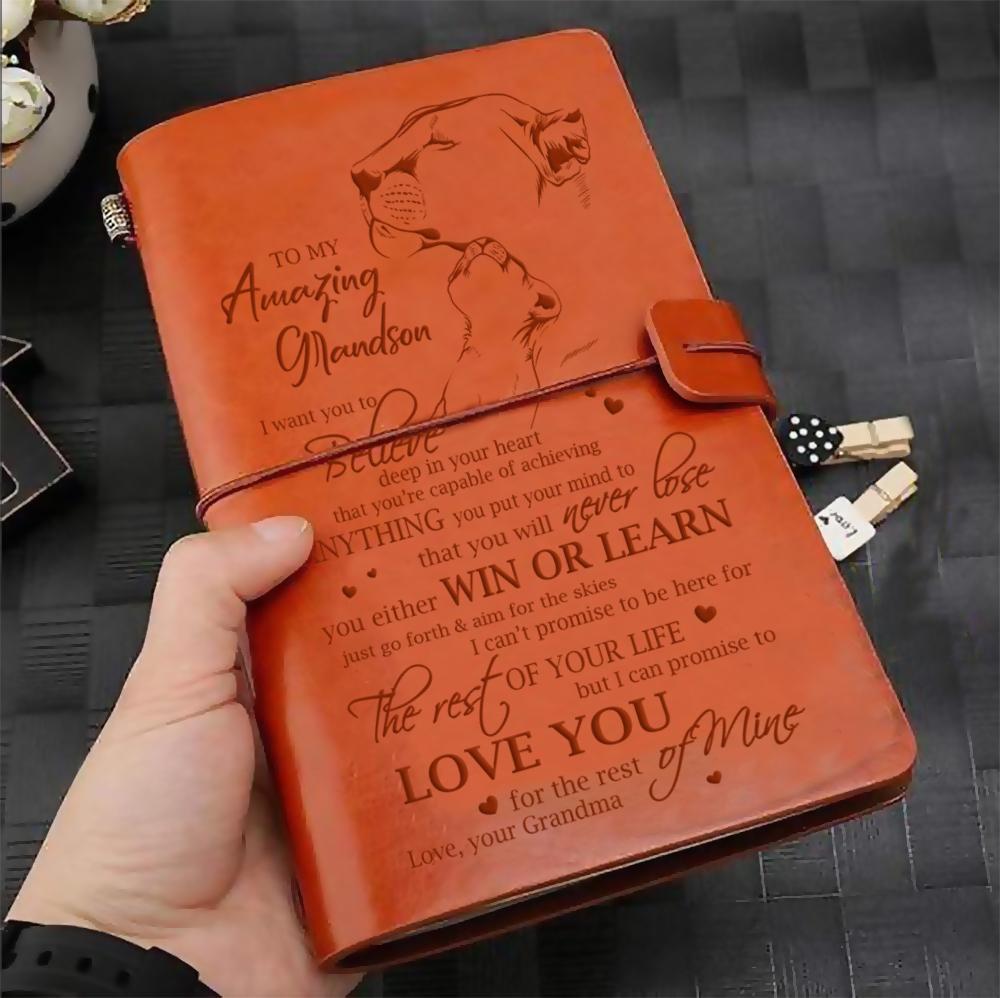 TO MY
Amazing
Grandson
I want you to
Believe
deep in your heart
that you're capable of achieving
ANYTHING you put your mind to
that you will never lose
you either WIN OR LEARN
just go forth & aim for the skies
I can't promise to be here for
The rest OF YOUR LIFE
but I can promise to
LOVE YOU
for the rest of Mine
Love, your Grandma